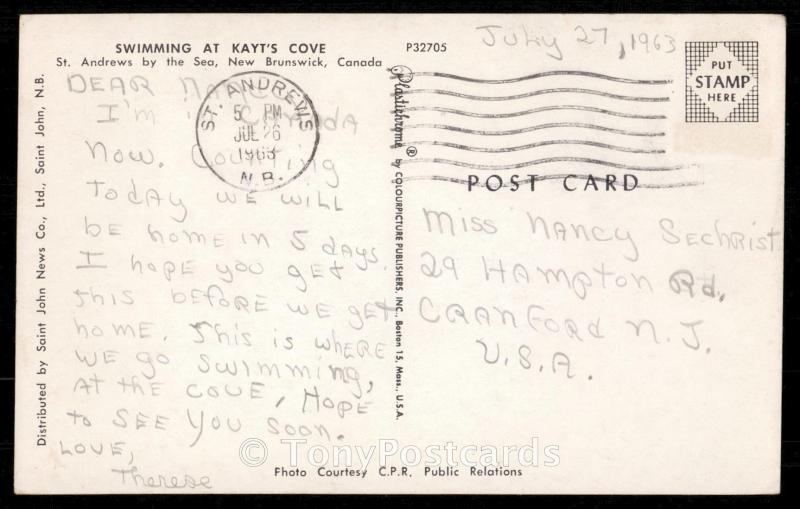 SWIMMING AT KAYT'S COVE
St. Andrews by the Sea, New Brunswick, Canada
P32705
July 27, 1963
PUT
STAMP
HERE
DEAR NANCY
I'm in CANADA
Now. Counting
today we will
be home in 5 days.
I hope you get
this before we get
home. This is where
we go swimming,
At the cove, Hope
to see you soon.
Love,
Therese
ST. ANDREWS
5 PM
JUL 26
1963
N.B.
POST CARD
Miss Nancy Sechrist
29 Hampton Rd.
Cranford N.J.
U.S.A.
Distributed by Saint John News Co., Ltd., Saint John, N.B.
Plastichrome® by COLOURPICTURE PUBLISHERS, INC., Boston 15, Mass., U.S.A.
© TonyPostcards
Photo Courtesy C.P.R. Public Relations